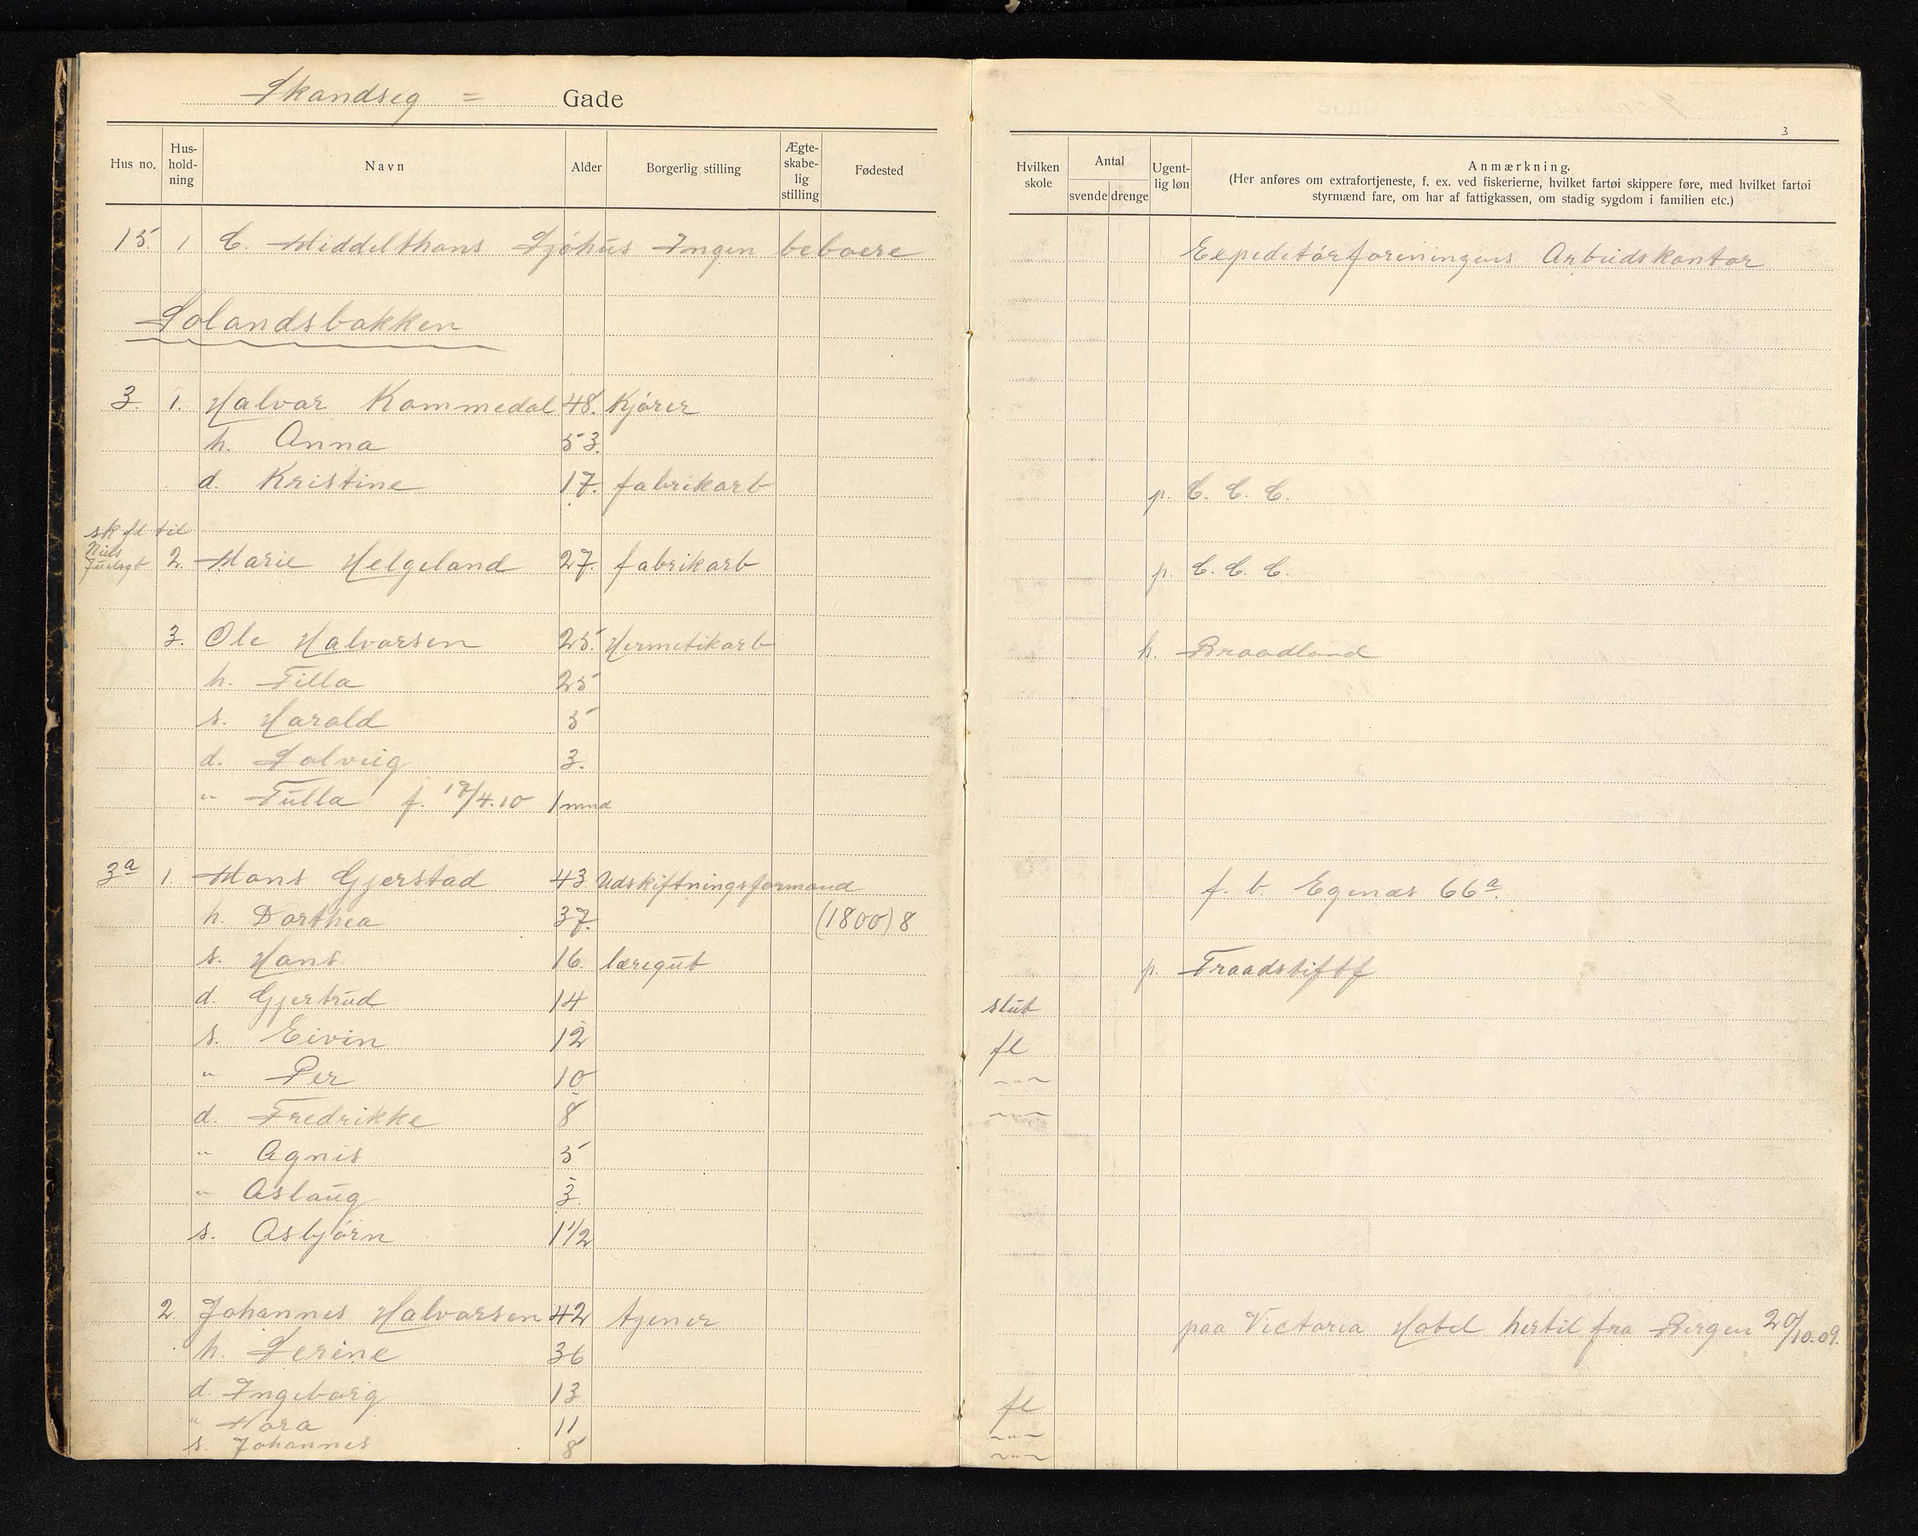 Skandseg = Gade
Hus no. Hus-hold-ning Navn Alder Borgerlig stilling Ægte-skabe-lig stilling Fødested
15. 1 C. Middelthons Sjøhus Ingen beboere
Solandsbakken
3. 1. Halvar Kommedal 48. Kjører
h. Anna 53.
d. Kristine 17. fabrikarb
sk fl til
Niels
Juelsgt 2. Marie Helgeland 27. fabrikarb
3. Ole Halvorsen 25. Hermetikarb
h. Tilla 25
s. Harald 5
d. Solveig 3.
" Tulla f. 17/4.10 1 mnd
3a 1. Hans Gjerstad 43 Udskiftningsformand
h. Dorthea 37. (1800) 8
s. Hans 16. læregut
d. Gjertrud 14
s. Eivin 12
" Per 10
d. Fredrikke 8
" Agnes 5
" Aslaug 3.
s. Asbjørn 1 1/2
2. Johannes Halvorsen 42 tjener
h. Serine 36
d. Ingeborg 13
" Nora 11
s. Johannes 8
3
Hvilken skole Antal svende drenge Ugent-lig løn Anmærkning.
(Her anføres om extrafortjeneste, f. ex. ved fiskerierne, hvilket fartøi skippere føre, med hvilket fartøi
styrmænd fare, om har af fattigkassen, om stadig sygdom i familien etc.)
Expeditørforeningens Arbeidskontor
p. C. C. C.
p. C. C. C.
h. Braadland
f. b. Egenæs 66a.
p. Traadstiftf
slut
fl
~"~
~"~
paa Victoria Hotel hertil fra Bergen 20/10.09.
fl
~"~
~"~